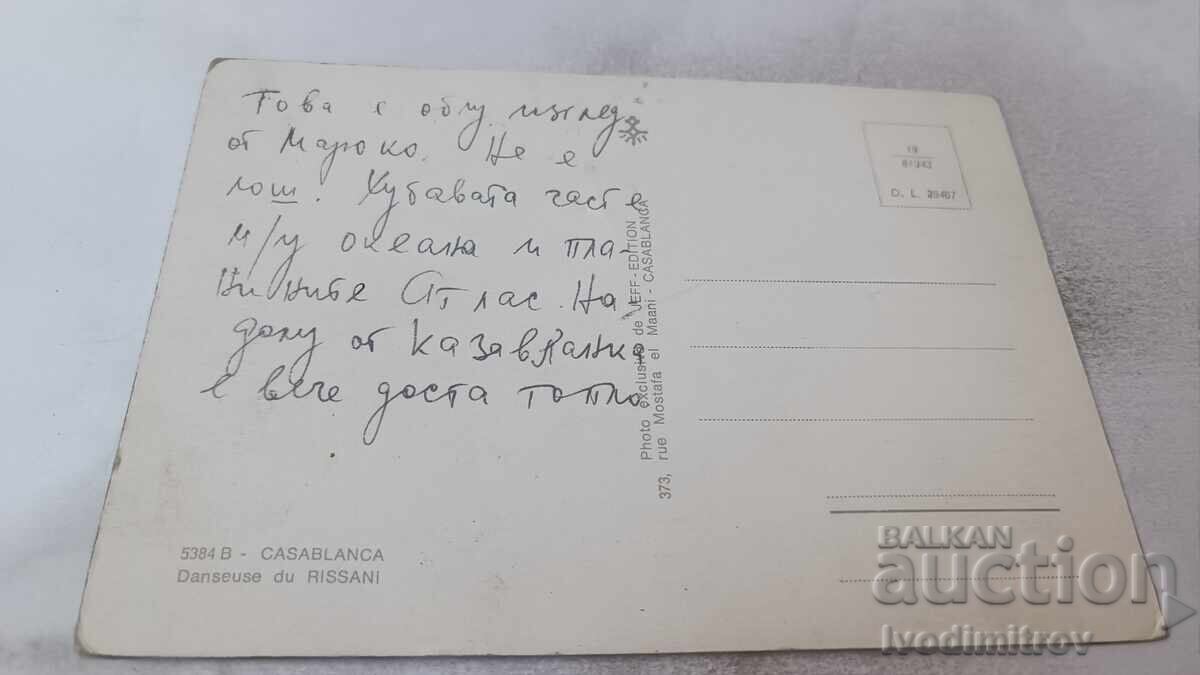 Това е общ изглед
от Мароко. Не е
лош. Хубавата част е
м/у океана и пла-
нините Атлас. На
долу от Казабланка
е вече доста топло
5384 B - CASABLANCA
Danseuse du RISSANI
Photo exclusive de JEFF-EDITION
373, rue Mostafa el Maani - CASABLANCA
19
81343
D. L. 39467
BALKAN
auction
Ivodimitrov